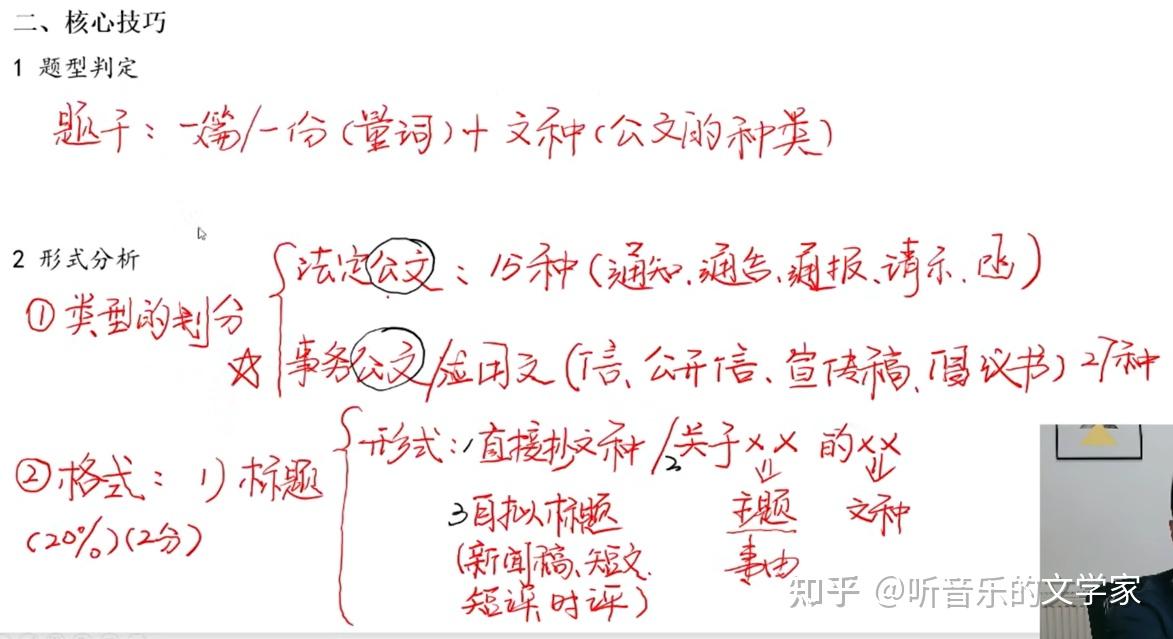 二、核心技巧
1 题型判定
题干：一篇/一份（量词）+ 文种（公文的种类）
2 形式分析
①类型的划分
法定公文：15种（通知、通告、通报、请示、函）
☆ 事务公文/应用文（信、公开信、宣传稿、倡议书）27种
②格式：1）标题
(20%)(2分)
形式：1直接抄文种/2关于××的××
主题 文种
事由
3自拟标题
（新闻稿、短文、
短评、时评）
知乎 @听音乐的文学家